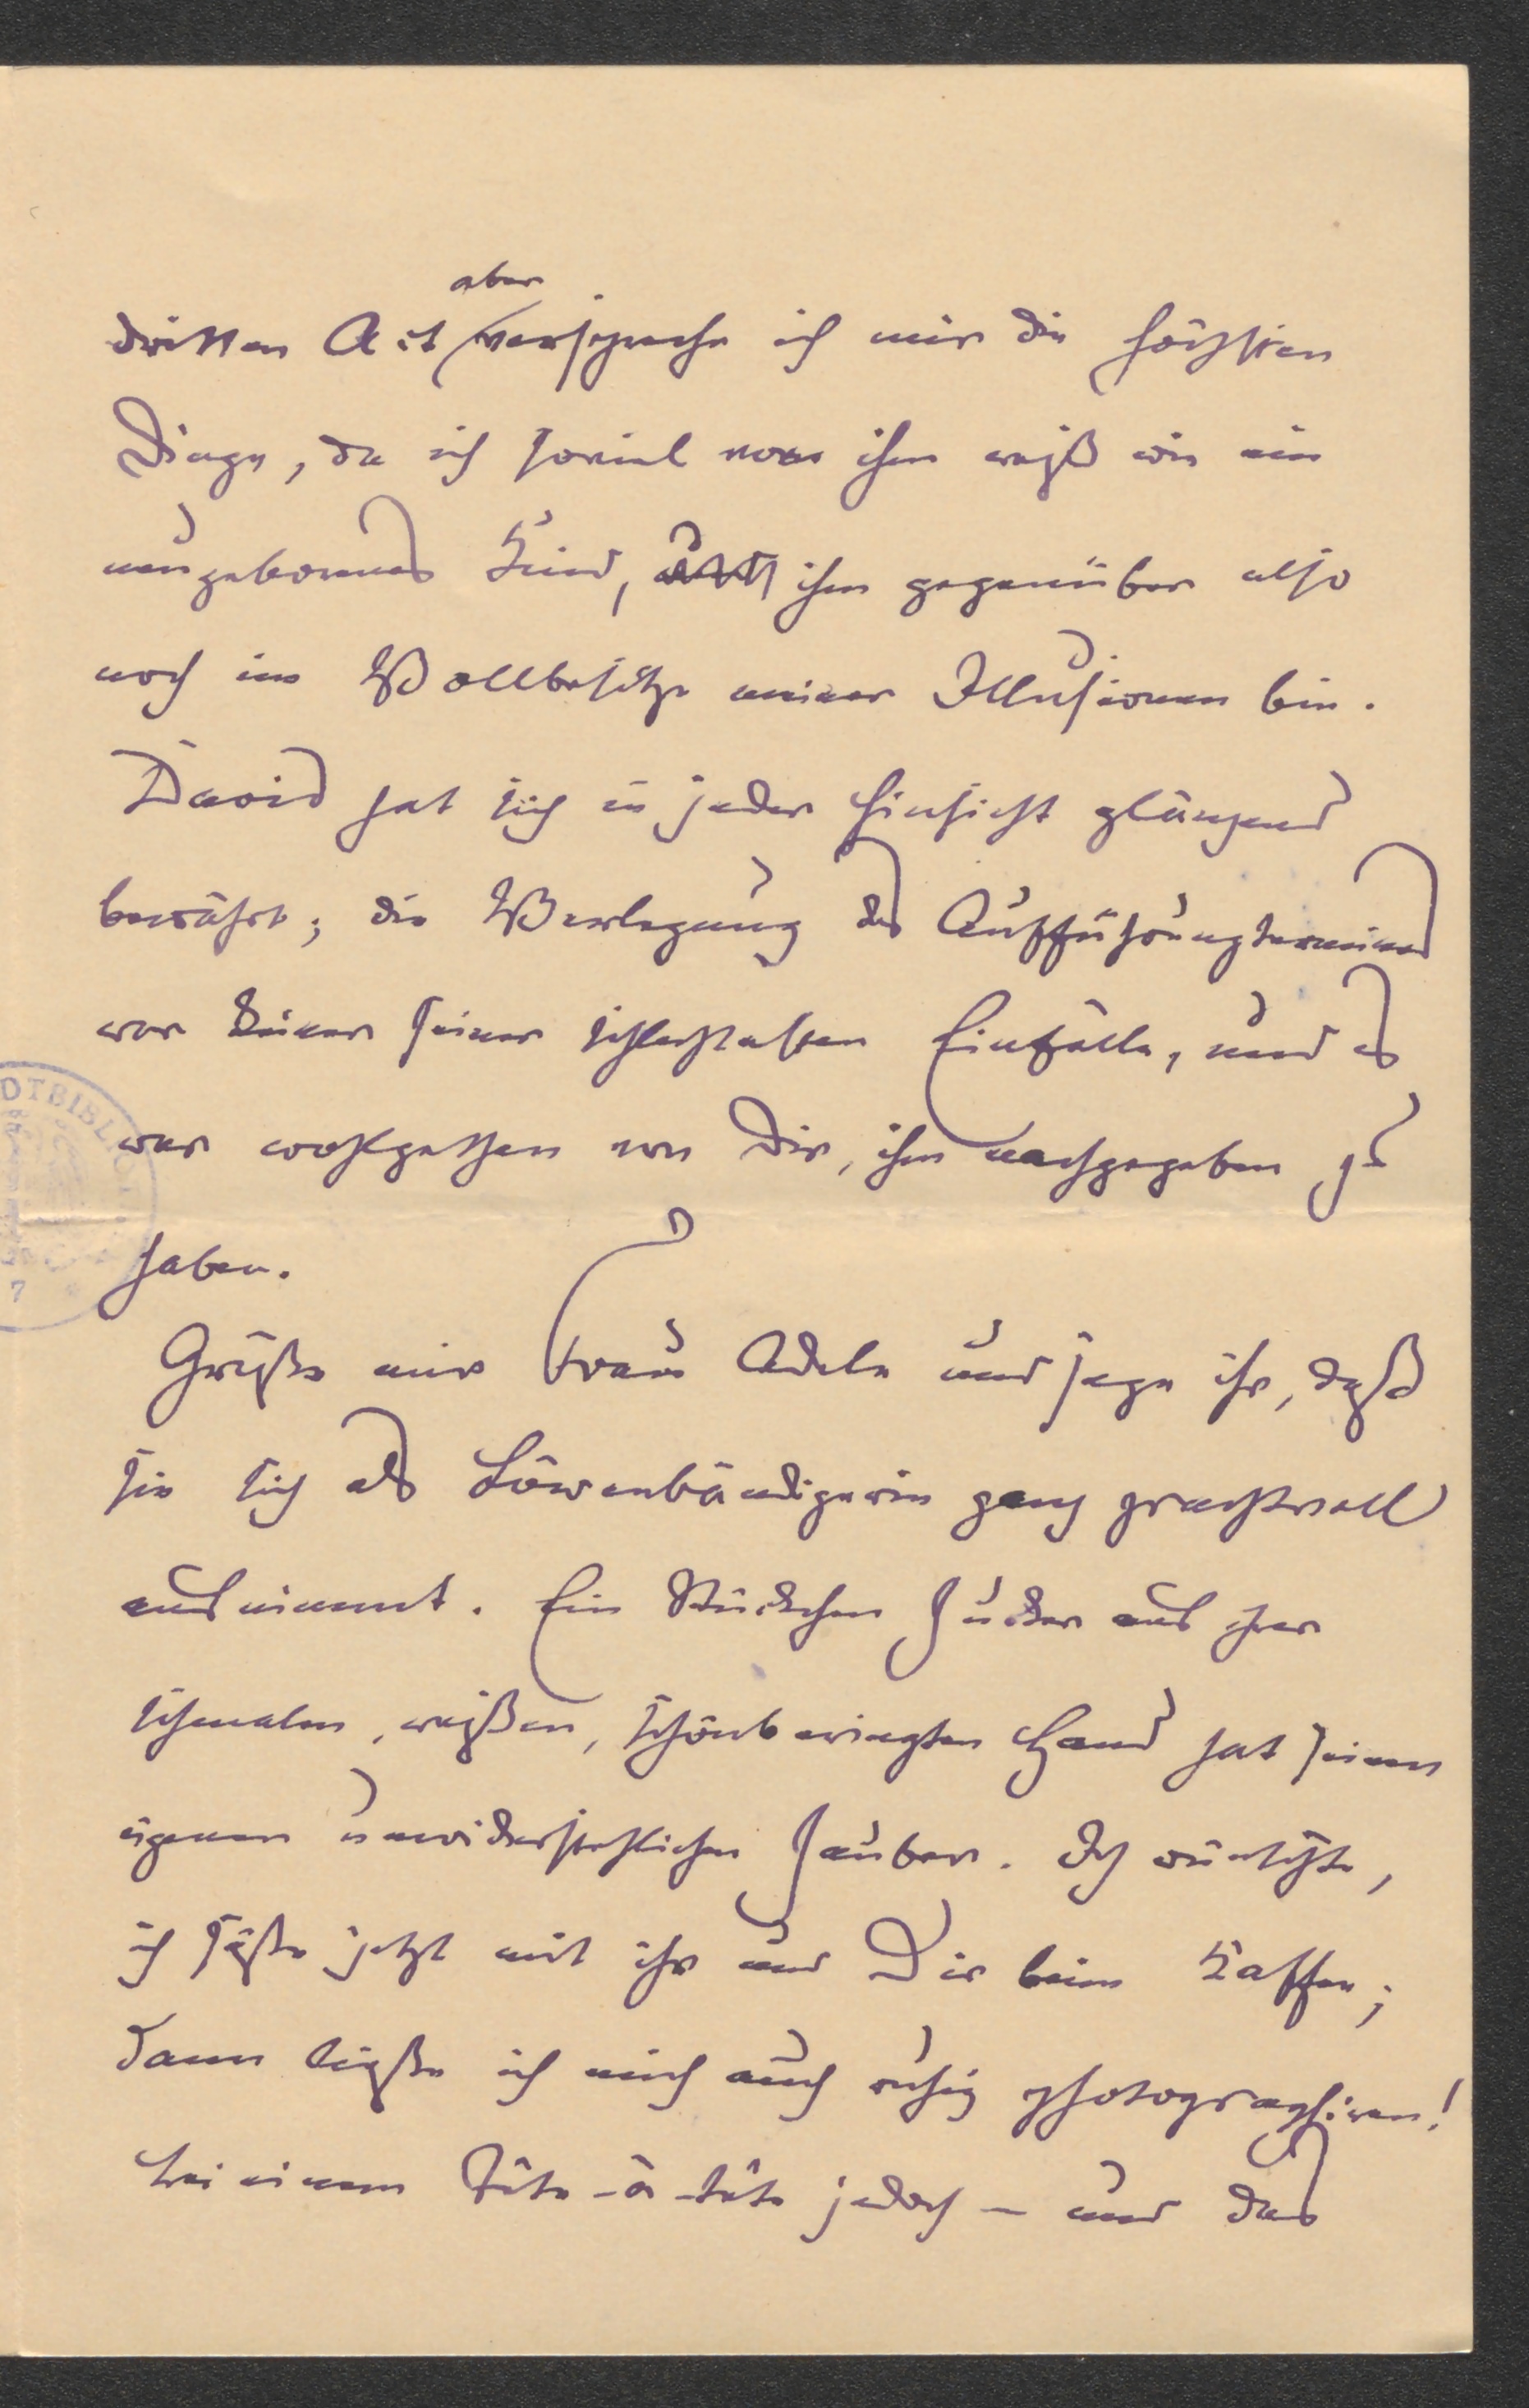 aber
dritten Act verspreche ich mir die höchsten
Dinge, da ich soviel von ihm weiß wie ein
neugebornes Kind, ihm gegenüber also
noch im Vollbesitze meiner Illusionen bin.
David hat sich in jeder Hinsicht glänzend
bewährt; die Verlegung des Aufführungtermines
war keiner seiner schlechtesten Einfälle, und es
war wohlgethan von Dir, ihm nachgegeben zu
haben.
Grüße mir Frau Adele und sage ihr, daß
sie sich als Löwenbändigerin ganz prachtvoll
ausnimmt. Ein Stückchen Zucker aus ihrer
schmalen, weißen, schönberingten Hand hat seinen
eigenen unwiderstehlichen Zauber. Ich wünschte,
ich säße jetzt mit ihr und Dir beim Kaffee;
dann ließe ich mich auch ruhig photographiren!
bei einem Tête-à-tête jedoch – und das
DTBIBL
7